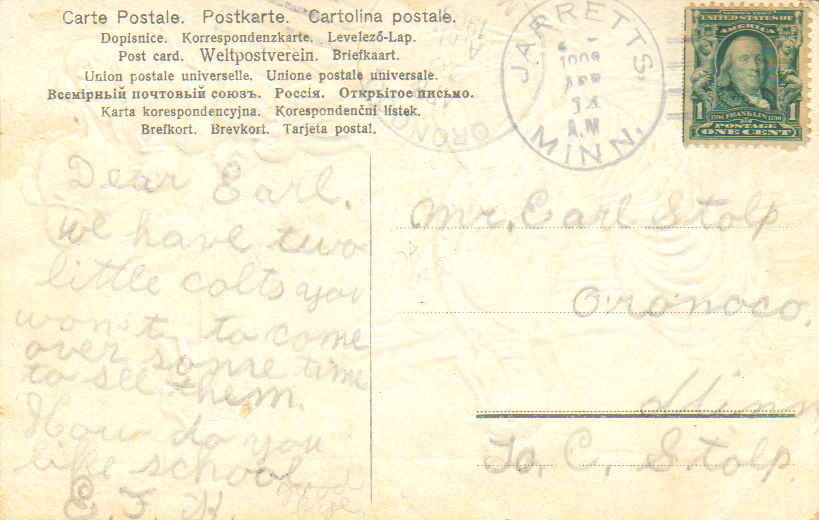 Carte Postale. Postkarte. Cartolina postale.
Dopisnice. Korrespondenzkarte. Levelező-Lap.
Post card. Weltpostverein. Briefkaart.
Union postale universelle. Unione postale universale.
Всемірный почтовый союзъ. Россія. Открытое письмо.
Karta korespondencyjna. Korespondenční lístek.
Brefkort. Brevkort. Tarjeta postal.
JARRETTS,
APR
A.M
MINN.
UNITED STATES OF
AMERICA
1 FRANKLIN 1
POSTAGE
ONE CENT
Dear Earl.
we have two
little colts you
won't to come
over some time
to see them.
How do you
like school
good
bye
E. F. K.
Mr. Earl Stolp
Oronoco.
Minn
To, C, Stolp